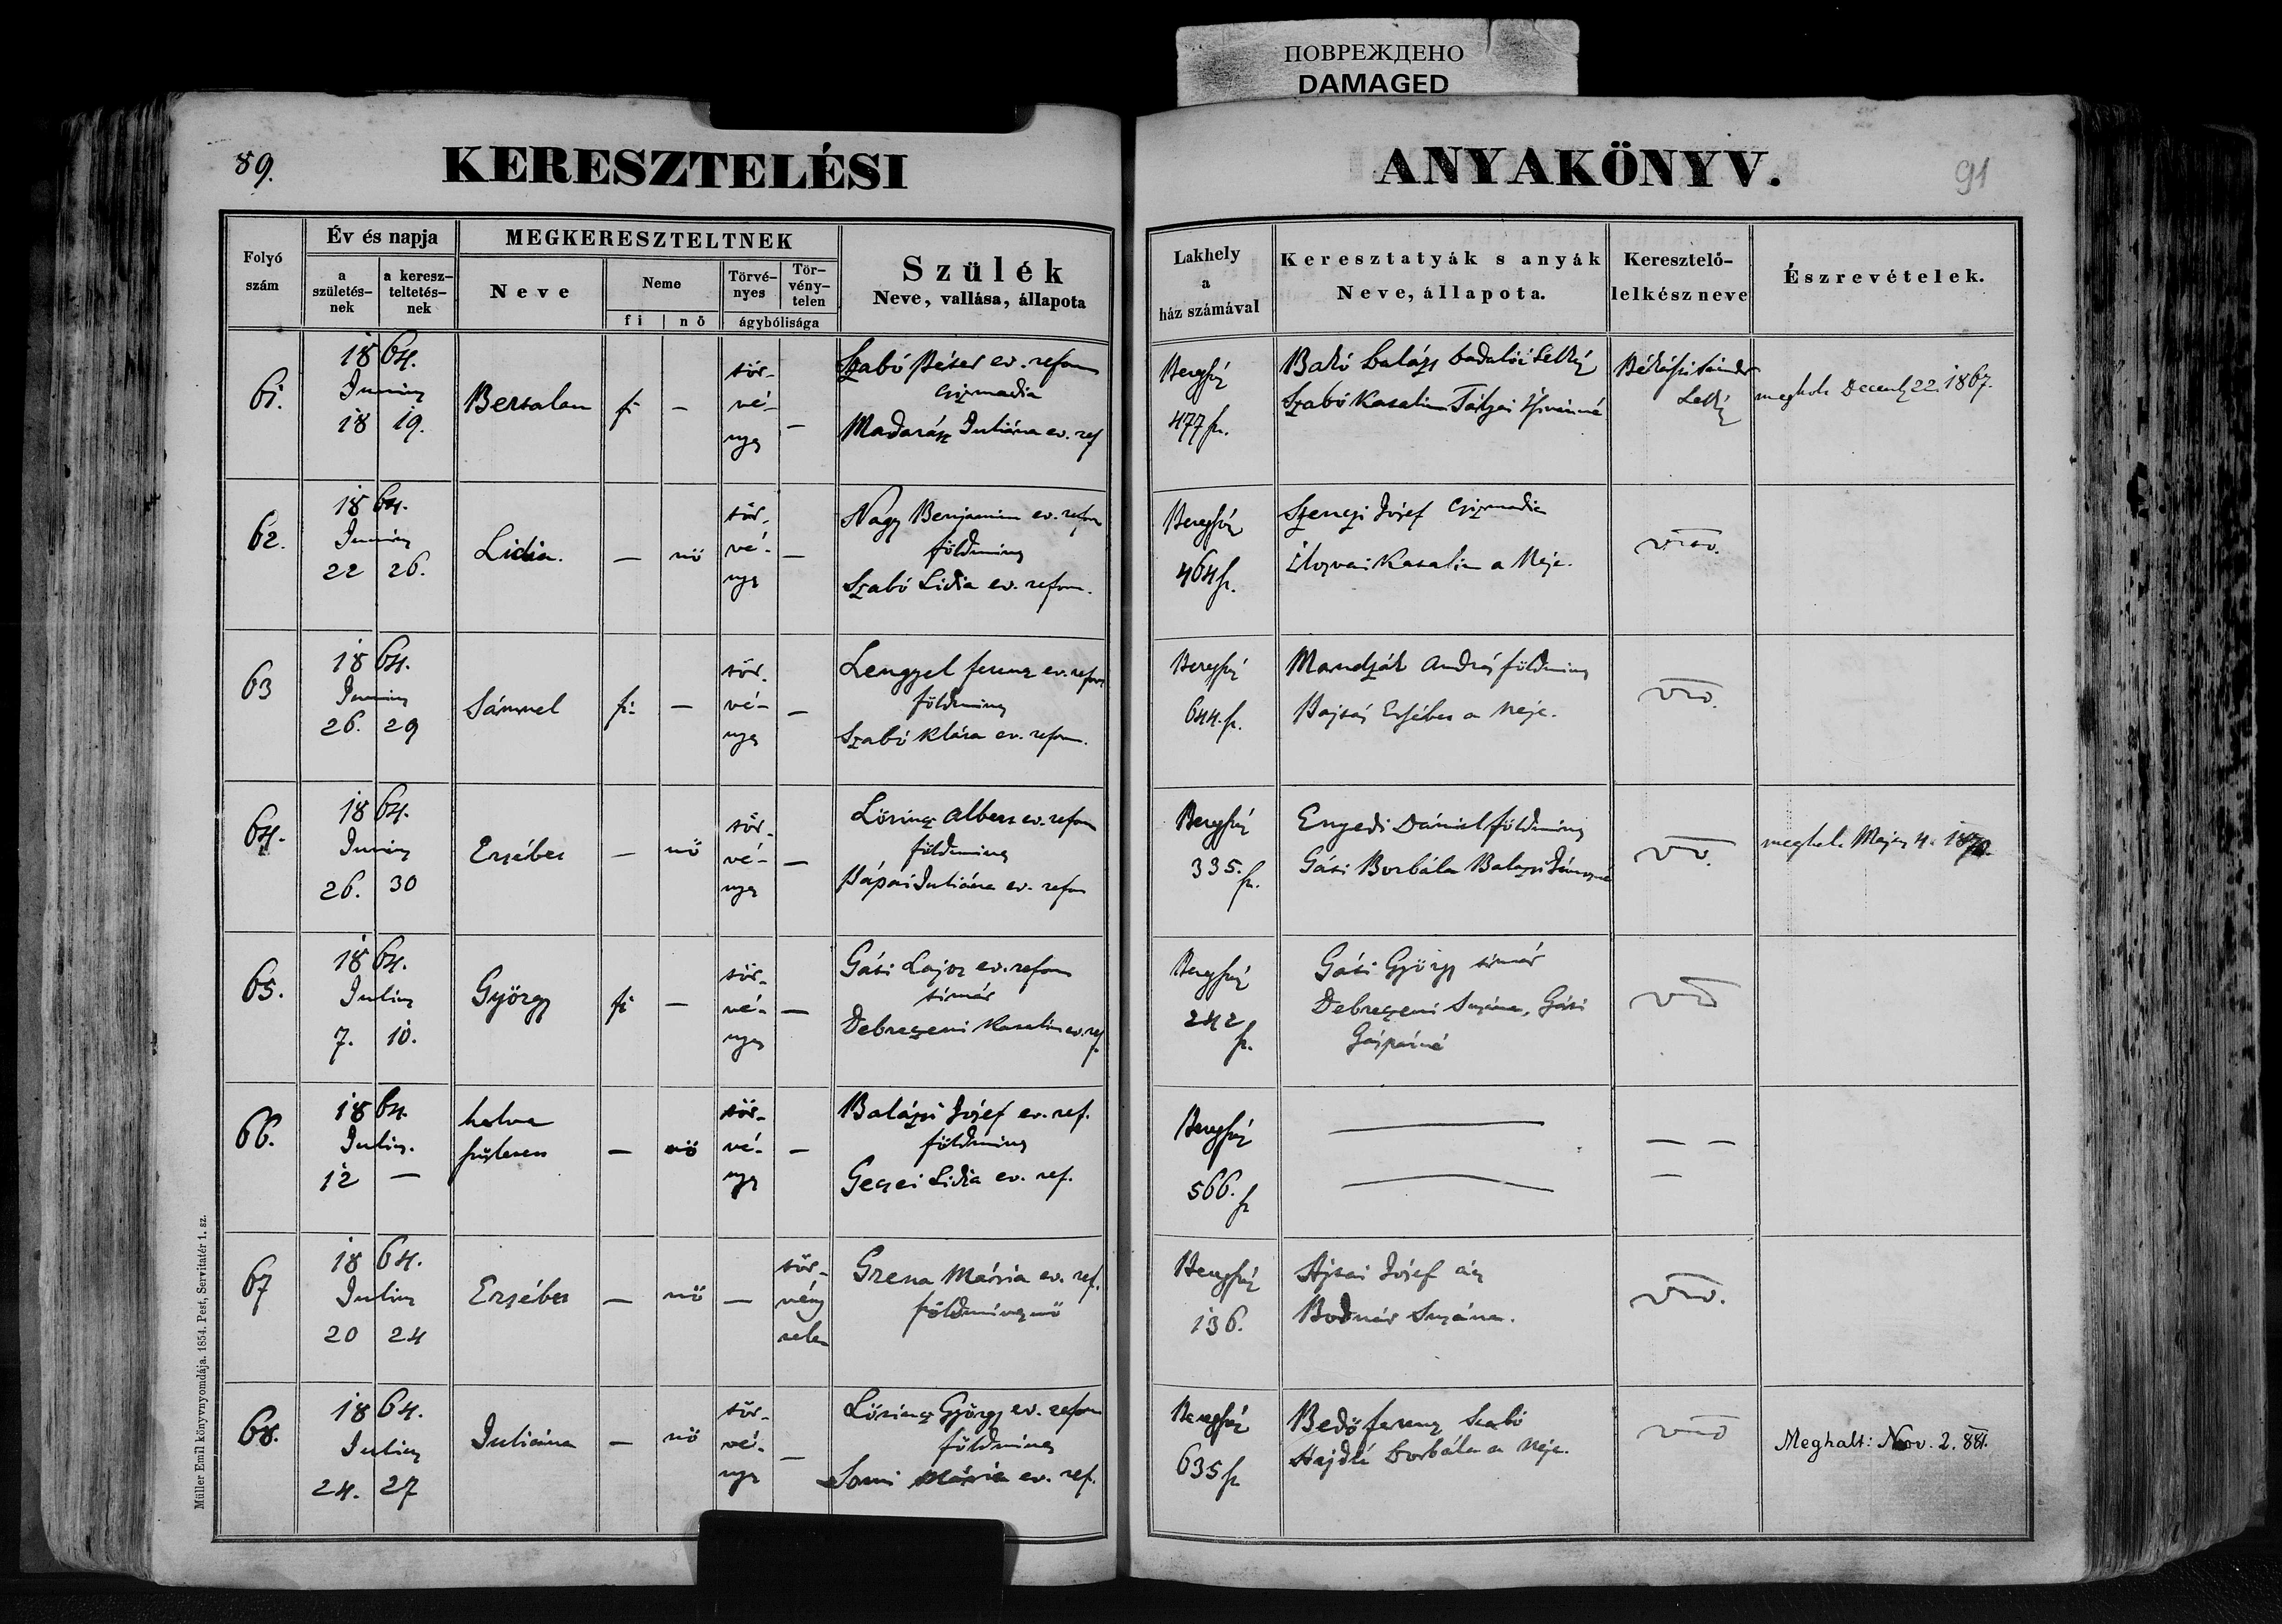 ПОВРЕЖДЕНО
DAMAGED
89.
KERESZTELÉSI
ANYAKÖNYV.
91
Folyó
szám
Év és napja
a
születés-
nek
a keresz-
teltetés-
nek
MEGKERESZTELTNEK
Neve
Neme
fi
nő
Törvé-
nyes
Tör-
vény-
telen
ágybólisága
Szülék
Neve, vallása, állapota
Lakhely
a
ház számával
Keresztatyák s anyák
Neve, állapota.
Keresztelő-
lelkész neve
Észrevételek.
61.
1864.
Junius
18 19.
Bertalan
fi
—
tör-
vé-
nyes
—
Szabó Péter ev. reform
csizmadia
Madarász Juliána ev. ref
Beregsz
477 sz.
Bakó Balázs badalói Lelkész
Szabó Katalin
Lelkész
meghalt Decemb 22. 1867.
62.
1864.
Junius
22 26.
Lidia.
—
nő
tör-
vé-
nyes
—
Nagy Benjamin ev. reform
földmives
Szabó Lidia ev. reform.
Beregsz
464 sz.
József csizmadia
Katalin a Neje.
63
1864.
Junius
26. 29
Sámuel
fi
—
tör-
vé-
nyes
—
Lengyel ferencz ev. reform
földmives
Szabó Klára ev. reform.
Beregsz
644. sz.
Mandzják András földmives
Erzsébet a neje.
64.
1864.
Junius
26. 30
Erzsébet
—
nő
tör-
vé-
nyes
—
Lőrincz Albert ev. reform
földmives
Pápai Juliána ev. reform
Beregsz
335. sz.
Engedi Dániel földmives
Gáti Borbála
meghalt Május 4.
65.
1864.
Julius
7. 10.
György
fi
—
tör-
vé-
nyes
—
Gáti Lajos ev. reform
timár
Debreczeni Katalin ev. ref
Beregsz
242
sz.
Gáti György timár
Debreczeni Suzána, Gáti
Gáspárné
66.
1864.
Julius.
12 —
halva
született
—
nő
tör-
vé-
nyes
—
Balázsi József ev. ref.
földmives
Geczei Lidia ev. ref.
Beregsz
566. sz
67
1864.
Julius
20 24
Erzsébet
—
nő
—
tör-
vény
telen
Grena Mária ev. ref.
földmivesnő
Beregsz
136.
Ajtai József ács
Bodnár Suzána.
68.
1864.
Julius
24. 27
Juliánna
—
nő
tör-
vé-
nyes
—
Lőrincz György ev. reform
földmives
Mária ev. ref.
Beregsz
635 sz
Bedő ferencz Szabó
Hajdú Borbála a Neje.
Meghalt: Nov. 2. 881.
Müller Emil könyvnyomdája. 1854. Pest, Servitatér 1. sz.